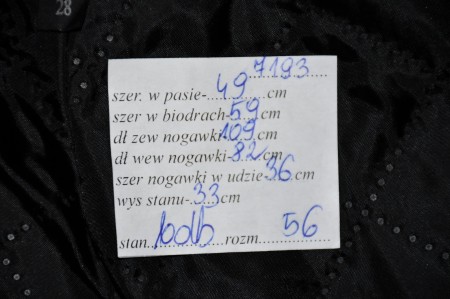 28
7193
szer. w pasie-49cm
szer w biodrach-59cm
dł zew nogawki-109cm
dł wew nogawki-82cm
szer nogawki w udzie-36cm
wys stanu-33cm
stan bdb rozm 56